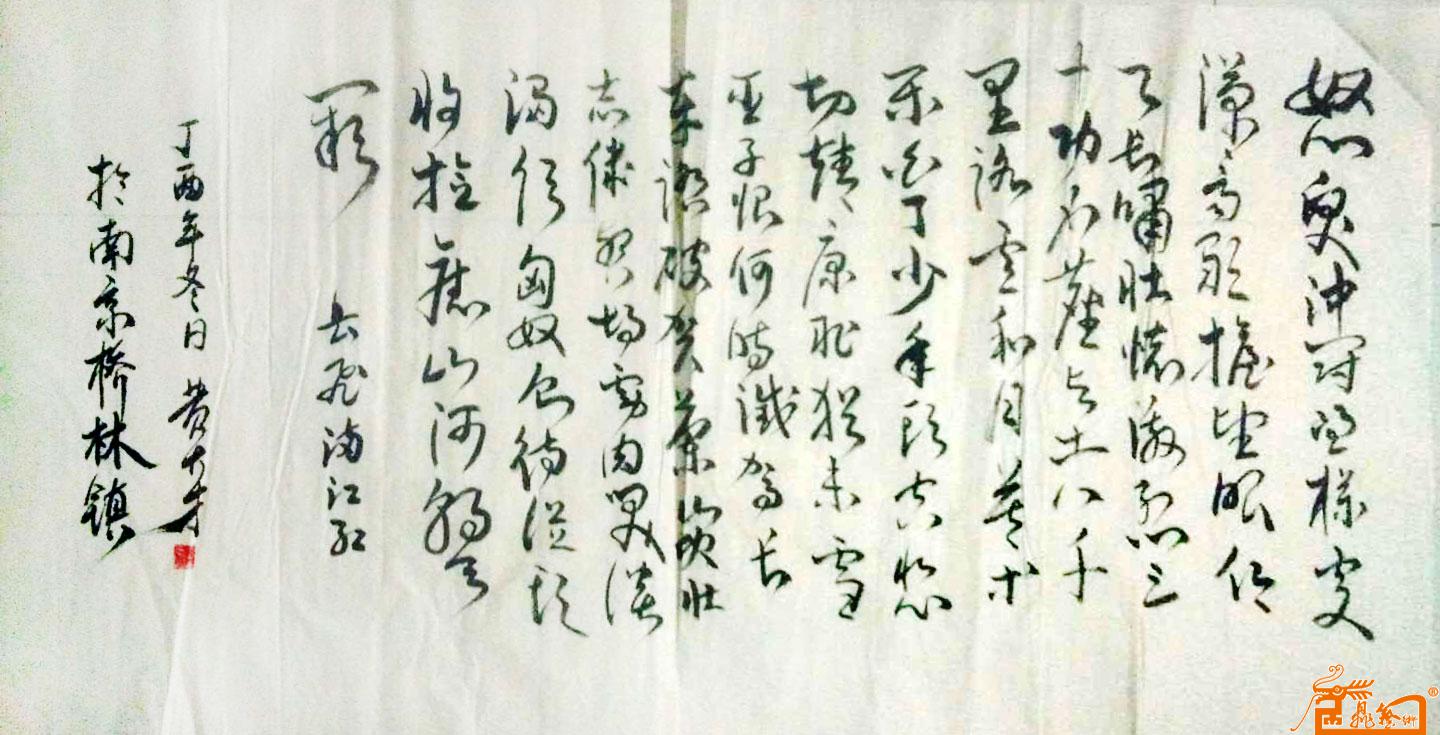 怒发冲冠凭栏处
潇雨歇抬望眼仰
天长啸壮怀激烈三
十功名尘与土八千
里路云和月莫等
闲白了少年头空悲
切靖康耻犹未雪
臣子恨何时灭驾长
车踏破贺兰山缺壮
志饥餐胡虏肉笑谈
渴饮匈奴血待从头
收拾旧山河朝天
阙 岳飞满江红
丁酉年冬日 黄大才
於南京桥林镇